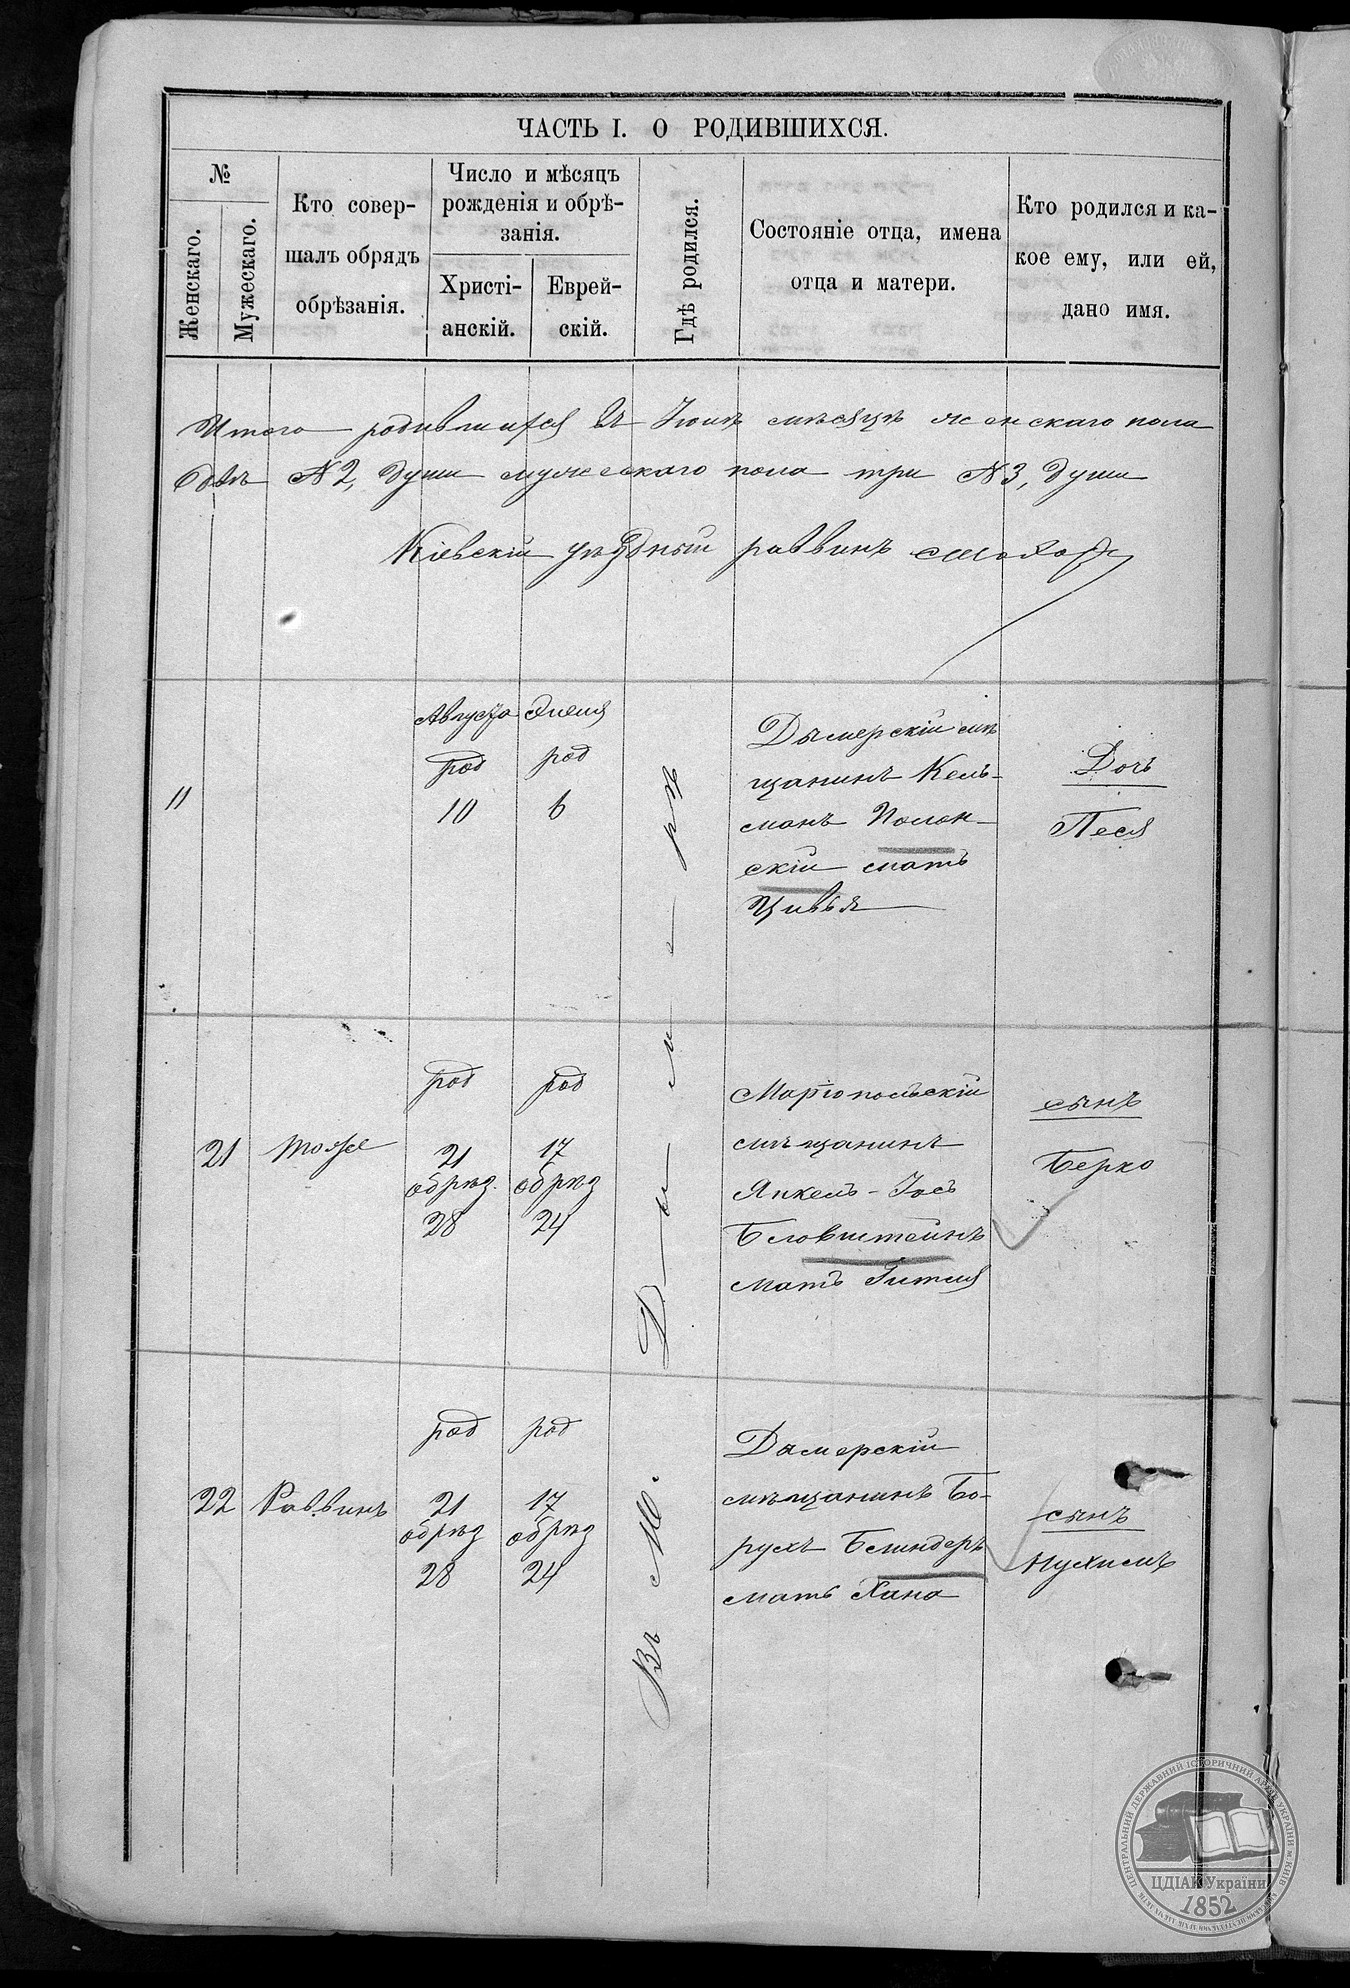 ЧАСТЬ I. О РОДИВШИХСЯ.
№
Женскаго.
Мужескаго.
Кто совер-
шалъ обрядъ
обрѣзанія.
Число и мѣсяцъ
рожденія и обрѣ-
занія.
Христі-
анскій.
Еврей-
скій.
Гдѣ родился.
Состояніе отца, имена
отца и матери.
Кто родился и ка-
кое ему, или ей,
дано имя.
Итого родившихся въ Іюлѣ мѣсяцѣ женскаго пола
двѣ N2, души мужескаго пола три N3, души
Кіевскій уѣздный раввинъ
Въ М. Дымерѣ
11
Августа
род
10
Элеля
род
6
Дымерскій мѣ
щанинъ Кель-
манъ Полон-
скій мать
Цивья
Дочь
Песя
21
Мойсе
род
21
обрѣз.
28
род
17
обрѣз
24
Маріопольскій
мѣщанинъ
Янкель-Іось
Бловштейнъ
мать Гитля
сынъ
Берко
22
Раввинъ
род
21
обрѣз
28
род
17
обрѣз
24
Дымерскій
мѣщанинъ Бо-
рухъ Блиндеръ
мать Хана
сынъ
Нухимъ
ЦЕНТРАЛЬНИЙ ДЕРЖАВНИЙ ІСТОРИЧНИЙ АРХІВ УКРАЇНИ м. КИЇВ
ЦДІАК України
1852